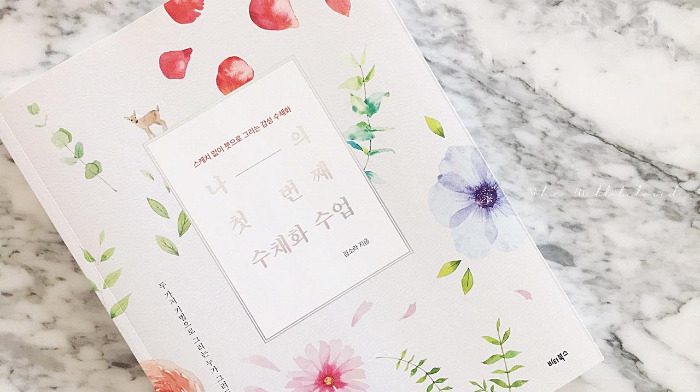 스케치 없이 붓으로 그리는 감성 수채화
나의
첫 번째
수채화 수업
김소라 지음
두 가지 기법으로 그리는
비타북스